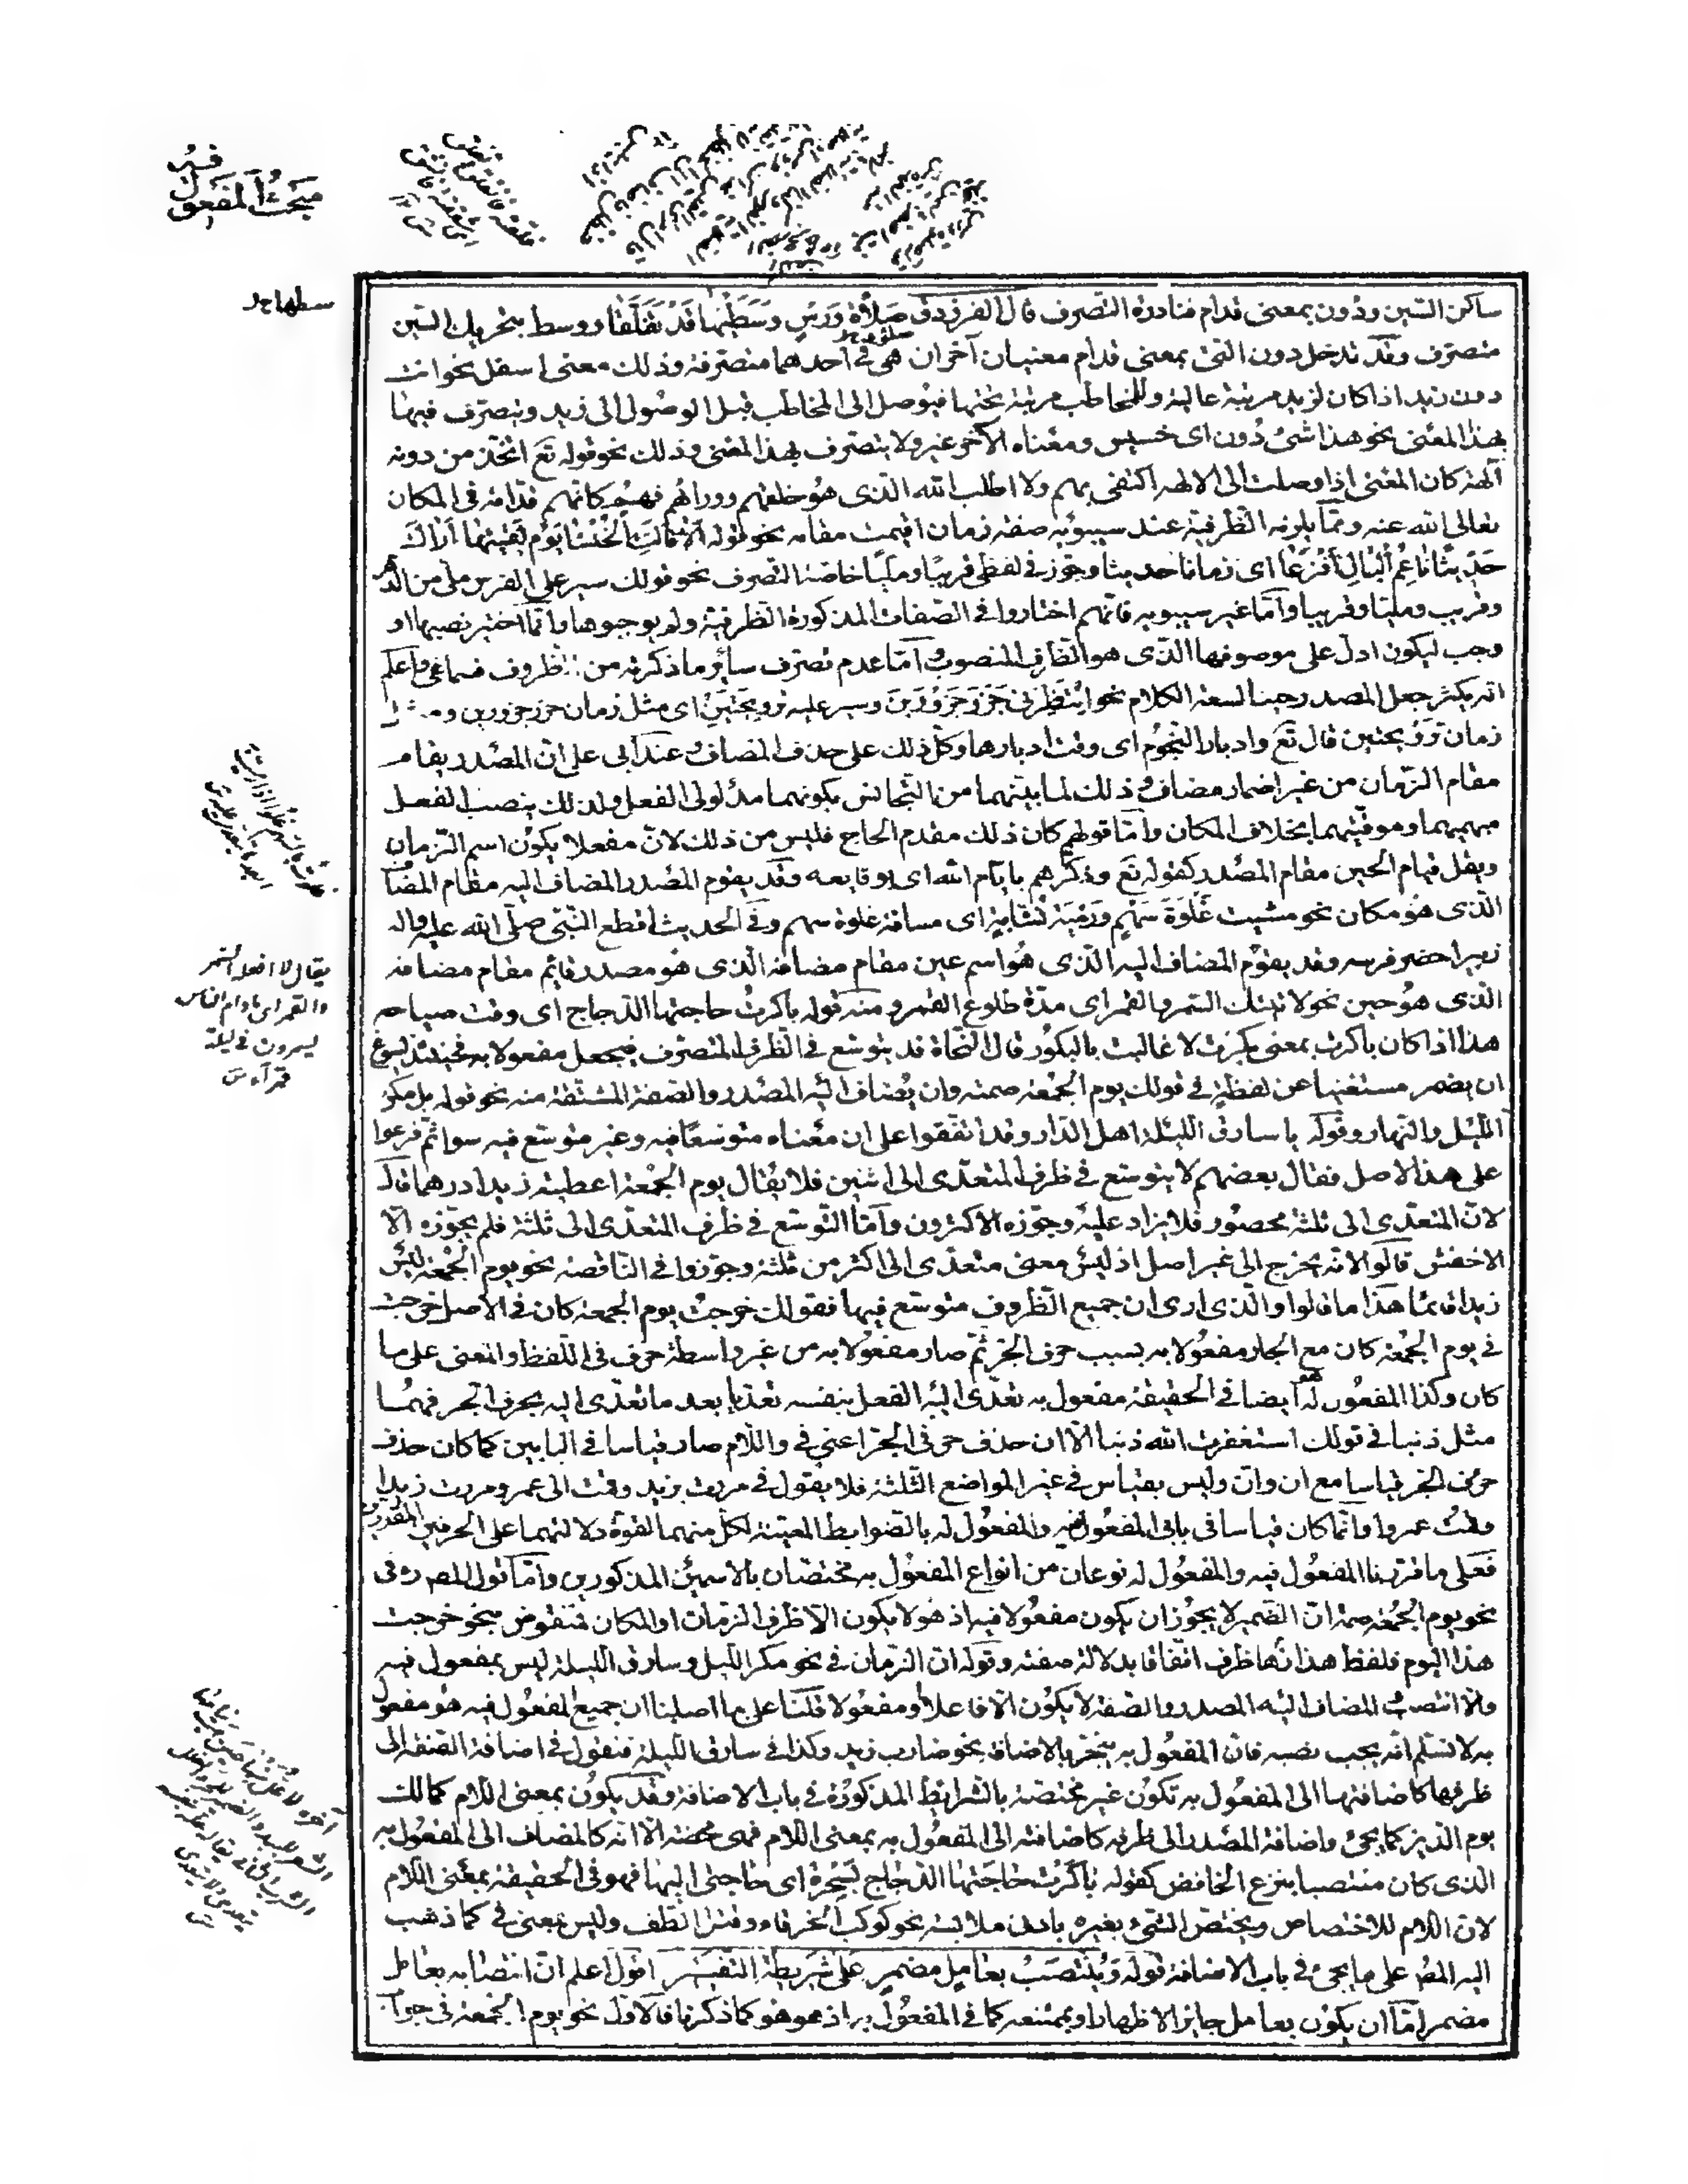 مبحث المفعول فيه
سطها حد
ساكن السين ودون بمعنى قدام فنادرة التصرف قال الفرزدق صلاءة ورس وسطها قد تفلقا ووسط بتحريك السين
متصرف وقد تدخل دون التي بمعنى قدام معنيان آخران هي في احدهما متصرفة وذلك معنى اسفل نحو انت
دون زيد اذا كان لزيد مرتبة عالية وللمخاطب مرتبة تحتها فيوصل الى المخاطب قبل الوصول الى زيد ويتصرف فيها
بهذا المعنى نحو هذا شئ دون اى خسيس ومعناه الآخر غير ولا يتصرف بهذا المعنى وذلك نحو قوله تع ااتخذ من دونه
آلهة كان المعنى اذا وصلت الى الآلهة اكتفى بهم ولا اطلب الله الذى هو خلفهم وورائهم فهم كانهم قدامه فى المكان
تعالى الله عنه ومما يلزمه الظرفية عند سيبويه صفة زمان اقيمت مقامه نحو قوله الا قالت الخنساء يوم لقيتها اراك
حديثا ناعم البال افرعا اى زمانا حديثا وجوز فى لفظى قريبا ومليا خاصة التصرف نحو قولك سير على الفرس ملى من الدهر
وقريب ومليا وقريبا واما غير سيبويه فانهم اختاروا فى الصفات المذكورة الظرفية ولم يوجبوها وانما اختير نصبها او
وجب ليكون ادل على موصوفها الذى هو الظرف المنصوب واما عدم تصرف سائر ما ذكرته من الظروف فسماعى واعلم
انه يكثر جعل المصدر حينا لسعة الكلام نحو انتظرنى جزر جزورين وسير عليه ترويحتين اى مثل زمان جزر جزورين ومثل
زمان ترويحتين قال تع وادبار النجوم اى وقت ادبارها وكل ذلك على حذف المضاف وعند ابى على ان المصدر يقام
مقام الزمان من غير اضمار مضاف وذلك لما بينهما من التجانس بكونهما مدلولى الفعل ولذلك ينصب الفعل
مبهميهما وموقتيهما بخلاف المكان واما قولهم كان ذلك مقدم الحاج فليس من ذلك لان مفعلا يكون اسم الزمان
ويقل قيام الحين مقام المصدر كقوله تع وذكرهم بايام الله اى بوقايعه وقد يقوم المصدر المضاف اليه مقام المضاف
الذى هو مكان نحو مشيت غلوة سهم ورمية نشابة اى مسافة غلوة سهم وفى الحديث اقطع النبى صلى الله عليه واله
زبيرا حضر فرسه وقد يقوم المضاف اليه الذى هو اسم عين مقام مضافه الذى هو مصدر قايم مقام مضافه
يقال لا افعله السمر
والقمر اى ما دام الناس
يسمرون فى ليلة
قمراء ص
الذى هو حين نحو لا اتيتك السمر والقمر اى مدة طلوع القمر ومنه قوله باكرت حاجتها الدجاج اى وقت صياحه
هذا اذا كان باكرت بمعنى بكرت لا غالبت بالبكور قال النحاة قد يتوسع فى الظرف المتصرف فيجعل مفعولا به فحينئذ يسوغ
ان يضمر مستغنيا عن لفظة فى قولك يوم الجمعة صمته وان يضاف اليه المصدر والصفة المشتقة منه نحو قوله بل مكر
الليل والنهار وقوله يا سارق الليلة اهل الدار وقد اتفقوا على ان معناه متوسعا فيه وغير متوسع فيه سواء ثم فرعوا
على هذا الاصل فقال بعضهم لا يتوسع فى ظرف المتعدى الى اثنين فلا يقال يوم الجمعة اعطيته زيدا درهما قال
لان المتعدى الى ثلثة محصور فلا يزاد عليه وجوزه الاكثرون واما التوسع فى ظرف المتعدى الى ثلثة فلم يجوزه الا
الاخفش قالوا لانه يخرج الى غير اصل اذ ليس معنى متعدى الى اكثر من ثلثة وجوزوا فى الناقصة نحو يوم الجمعة ليس
زيد قائما هذا ما قالوا والذى ارى ان جميع الظروف متوسع فيها فقولك خرجت يوم الجمعة كان فى الاصل خرجت
فى يوم الجمعة كان مع الجار مفعولا به بسبب حرف الجر ثم صار مفعولا به من غير واسطة حرف فى اللفظ والمعنى على ما
كان وكذا المفعول له هو ايضا فى الحقيقة مفعول به تعدى اليه الفعل بنفسه تعديا بعد ما تعدى اليه بحرف الجر فهما
مثل ذنبا فى قولك استغفرت الله ذنبا الا ان حذف حرفى الجر اعنى فى واللام صار قياسا فى البابين كما كان حذف
حرف الجر قياسا مع ان وان وليس بقياس فى غير المواضع الثلثة فلا يقول فى مررت بزيد وقمت الى عمرو مررت زيدا
وقمت عمروا وانما كان قياسا فى بابى المفعول فيه والمفعول له بالضوابط المعينة لكل منهما لقوة دلالتهما على الحرفين المقدرين
فعلى ما قررنا المفعول فيه والمفعول له نوعان من انواع المفعول به مختصان بالاسمين المذكورين واما قول المصر ه فى
نحو يوم الجمعة صمته ان الضمير لا يجوز ان يكون مفعولا فيه اذ هو لا يكون الا ظرف الزمان او المكان فمنقوض بنحو خرجت
هذا اليوم فلفظ هذا ثمها ظرف اتفاقا بدلالة صفته وقوله ان الزمان فى نحو مكر الليل وسارق الليلة ليس بمفعول فيه
والا انتصب المضاف اليه المصدر والصفة لا يكون الا فاعلا او مفعولا قلنا على ما اصلنا ان جميع المفعول فيه هو مفعول
به لا نسلم انه يجب نصبه فان المفعول به ينجر بالاضافة نحو ضارب زيد وكذا فى سارق الليلة فنقول فى اضافة الصفة الى
ظرفها كاضافتها الى المفعول به تكون غير مختصة بالشرائط المذكورة فى باب الاضافة وقد يكون بمعنى اللام كمالك
يوم الدين كما يجئ واضافة المصدر الى ظرفه كاضافته الى المفعول به بمعنى اللام فهى محضة الا انه كالمضاف الى المفعول به
الذى كان منتصبا بنزع الخافض كقوله باكرت حاجتها الدجاج بسحرة اى حاجتى اليها فهو فى الحقيقة بمعنى اللام
لان اللام للاختصاص ويختص الشئ بغيره بادنى ملابسة نحو كوكب الخرقاء وقتل الطف وليس بمعنى فى كما ذهب
اليه المص على ما يجئ فى باب الاضافة قوله وينتصب بعامل مضمر على شريطة التفسير اقول اعلم ان انتصابه بعامل
مضمر اما ان يكون بعامل جايز الاظهار او بممتنعه كما فى المفعول به اذ هو هو كما ذكرنا فالاول نحو يوم الجمعة فى جواب